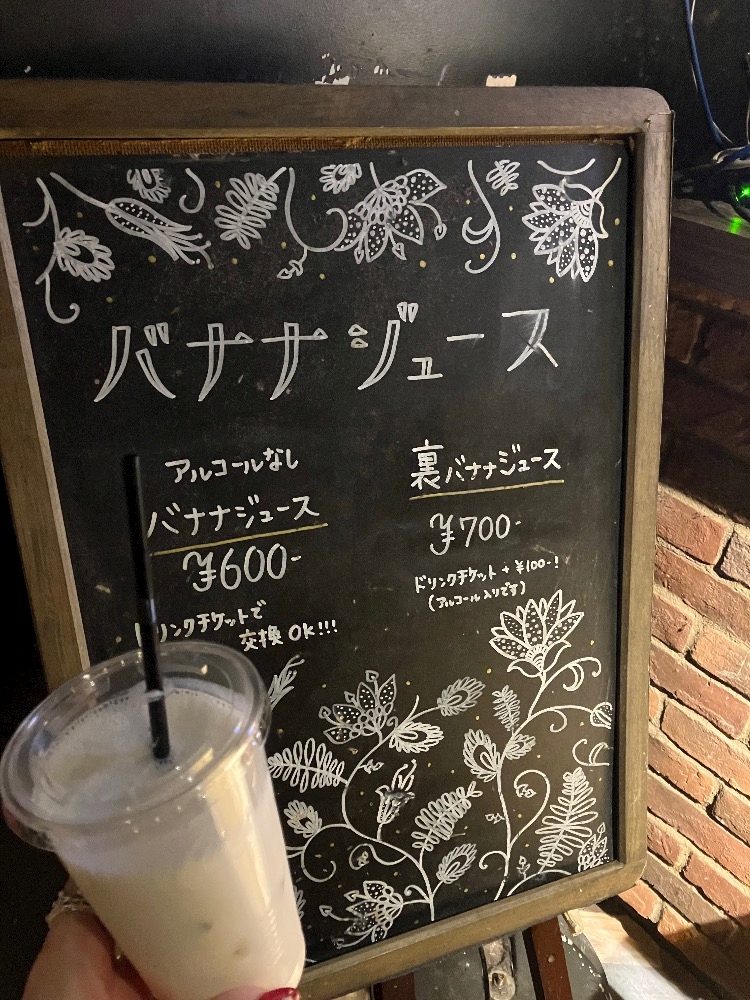 バナナジュース
アルコールなし
バナナジュース
¥600-
ドリンクチケットで
交換 OK!!!
裏バナナジュース
¥700-
ドリンクチケット + ¥100-!
(アルコール入りです)